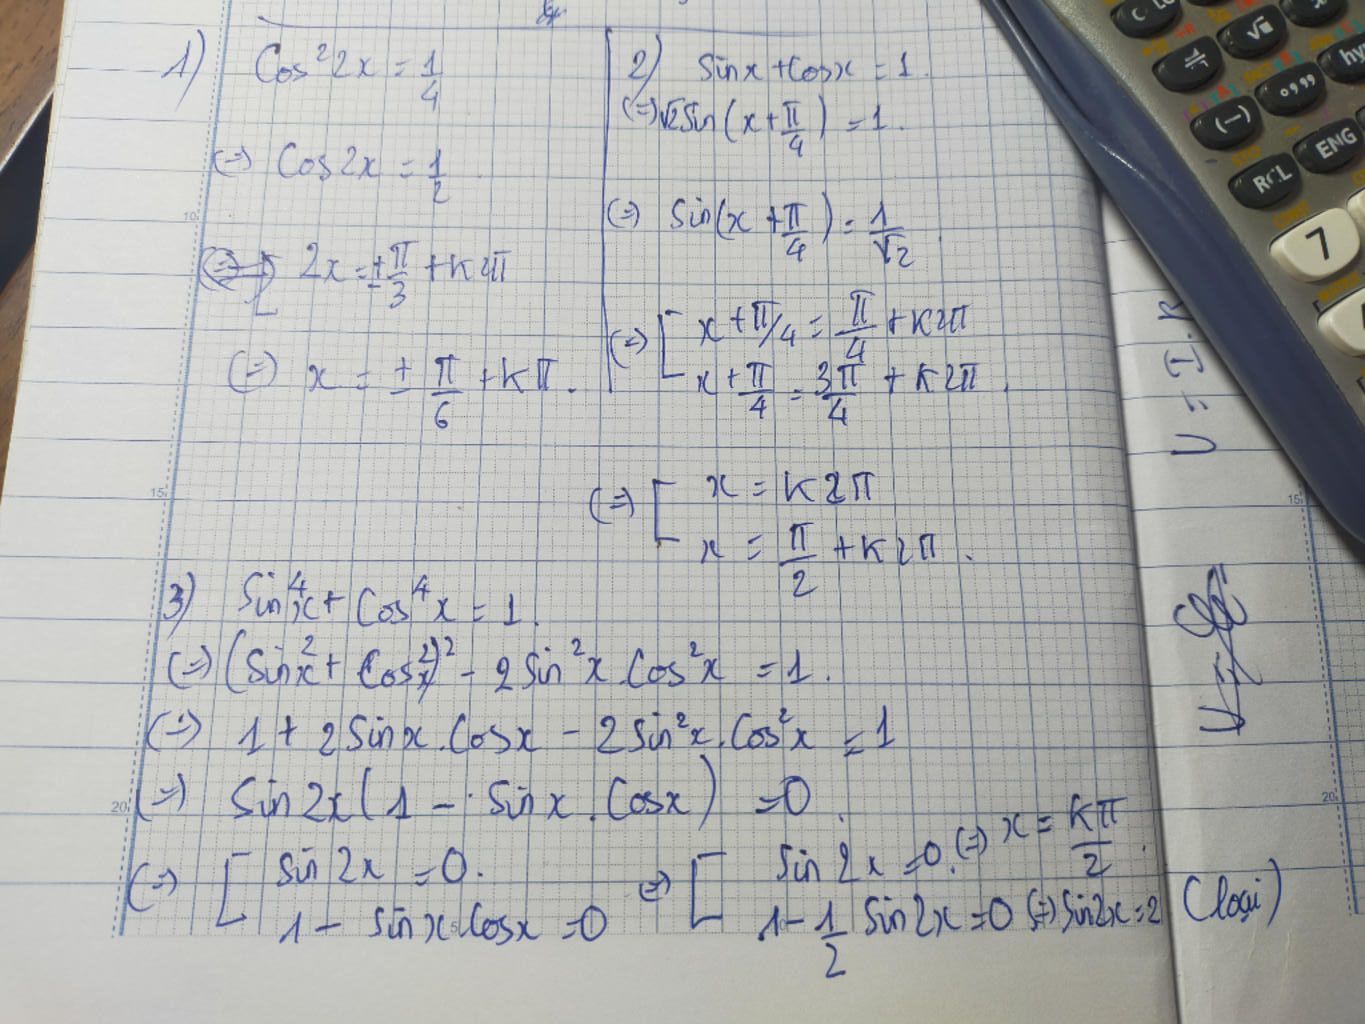 1) Cos²2x = 1/4
(=) Cos2x = 1/2.
2x = ±π/3 + k2π
(=) x = ± π/6 + kπ.
2) Sinx + Cosx = 1.
(=) √2Sin(x + π/4) = 1.
(=) Sin(x + π/4) = 1/√2.
(=) [ x + π/4 = π/4 + k2π
x + π/4 = 3π/4 + k2π.
(=) [ x = k2π
x = π/2 + k2π.
3) Sin⁴x + Cos⁴x = 1.
(=) (Sinx² + Cosx²)² - 2Sin²x.Cos²x = 1.
(=) 1 + 2Sinx.Cosx - 2Sin²x.Cos²x = 1
(=) Sin2x(1 - Sinx.Cosx) = 0.
(=) [ Sin2x = 0.
1 - Sinx.Cosx = 0
(=) [ Sin2x = 0. (=) x = kπ/2.
1 - 1/2 Sin2x = 0 (=) Sin2x = 2 (loại)
U = I.R
10
15
20
15
20
RCL
ENG
(−)
hy
7